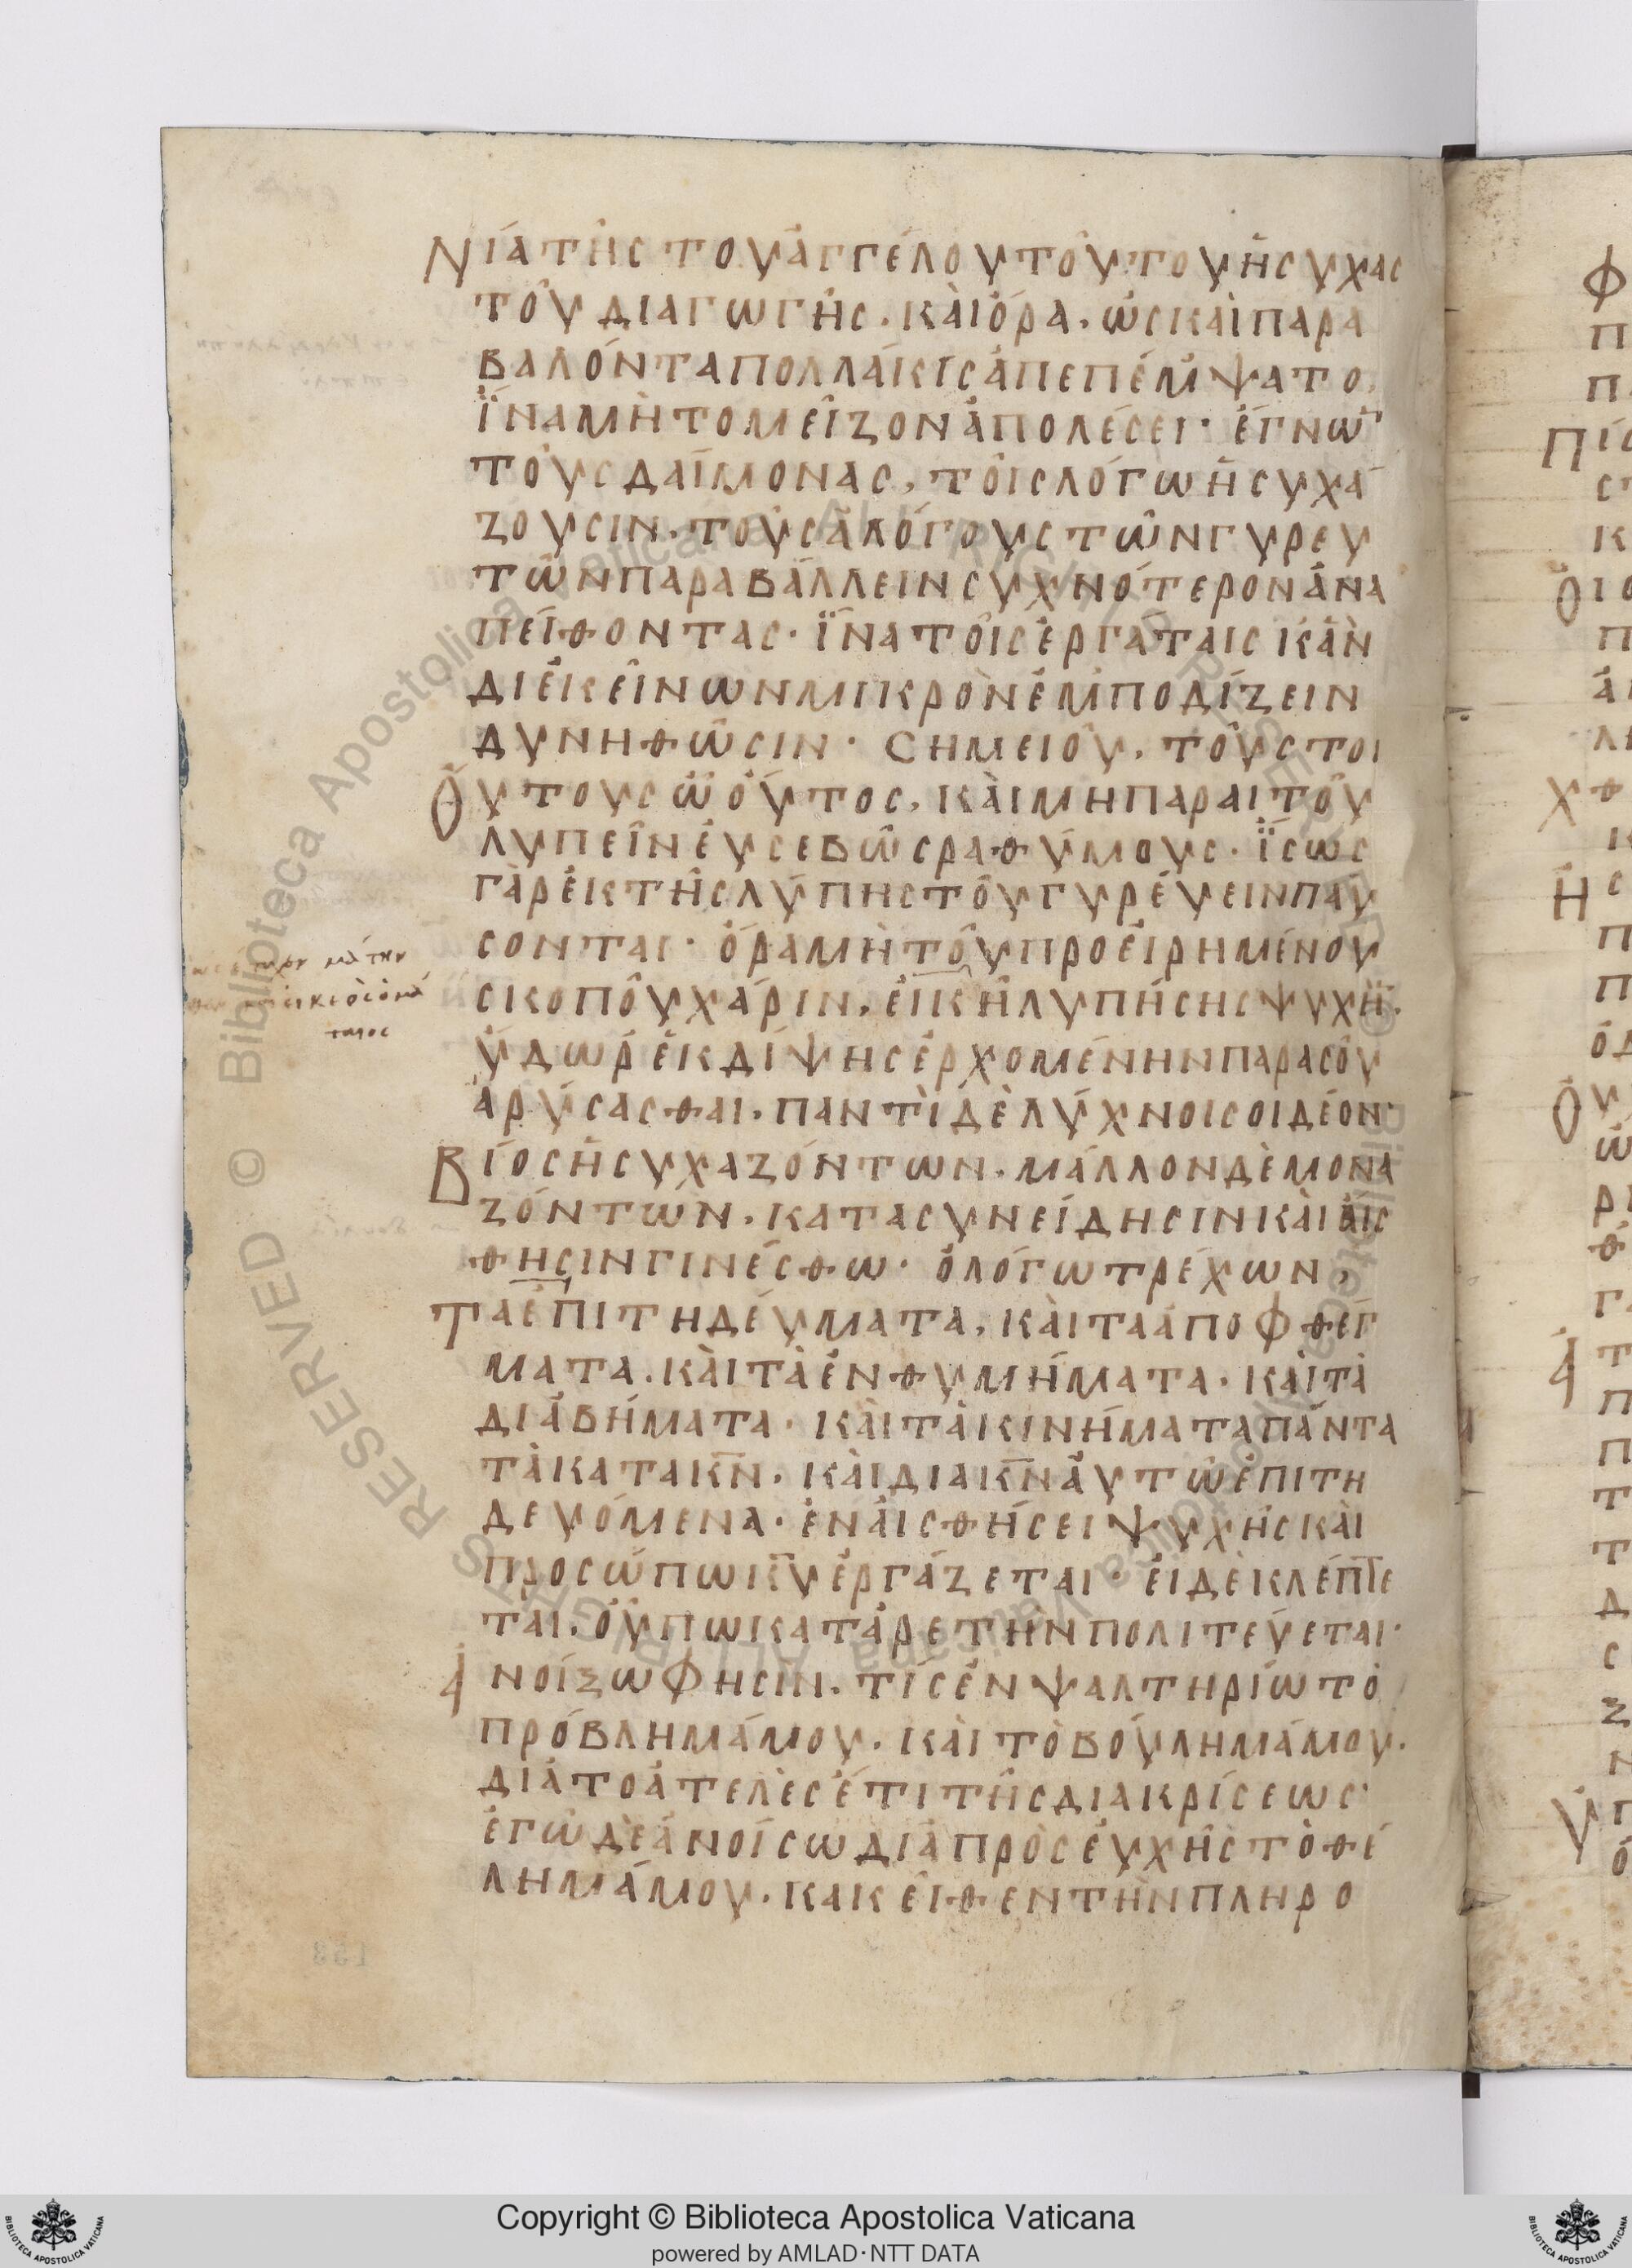 Νίατῆς τοῦ ἀγγέλου τοῦτου ἡσυχας
τοῦ διαγωγῆς. κὰι ὅρα. ὡς κὰι παρα
βαλόντα πολλάκις ἀπεπέμψατο,
ἵνα μὴ το μεῖζον ἀπολέσει· ἔγνων
τοὺς δαίμονας, τοῖς λόγω ἡσυχά
ζουσιν. τοὺς ἀλόγους τῶν γυρευ
τῶν παραβάλλειν συχνότερον ἀνα
πείθοντας· ἵνα τοῖς ἐργάταις κἂν
δι ἐκείνων μικρὸν ἐμποδίζειν
δυνηθῶσιν· Σημειοῦ, τοὺς τοι
Οὕτους ὦ οὗτος, κὰι μη παραιτοῦ
λυπεῖν ἐυσεβῶς ραθύμους· ἴσως
γὰρ ἐκ τῆς λύπης τοῦ γυρέυειν παύ
σονται· ὅρα μὴ τοῦ προειρημένου
σκοποῦ χάριν, ἐικῆ λυπήσης ψυχὴ.
ὕδωρ ἐκ δίψης ἐρχομένην παρα σοῦ
ἀρύσασθαι. παντὶ δὲ λύχνοι σοι δέον·
Βίος ἡσυχαζόντων. μάλλον δὲ μονα
ζόντων. κατα συνείδησιν κὰι ἀίσ
θησιν γινέσθω· ὁ λόγω τρέχων,
Τα ἐπιτηδέυματα, κὰι τα ἀποφθέγ
ματα. κὰι τὰ ἐνθυμήματα. κὰι τὰ
διαβήματα· κὰι τὰ κινήματα πάντα
τὰ κατα κν. κὰι δια κν ἀυτῶ ἐπιτη
δευόμενα· ἐν ἀισθήσει ψυχῆς κὰι
προσώπω κυ ἐργάζεται· ἐι δὲ κλέπτε
ται, ὄυπω κατ ἀρετὴν πολιτέυεται·
Ἀνοίξω φησιν. τίς ἐν ψαλτηρίω τὸ
πρόβλημά μου. κὰι τὸ βούλημά μου.
διὰ το ἀτελὲς ἔτι τῆς διακρίσεως·
ἐγὼ δὲ ἀνοίσω διὰ προσευχῆς τὸ θέ
λημά μου. κακεῖθεν τὴν πληρο
Copyright © Biblioteca Apostolica Vaticana
powered by AMLAD·NTT DATA